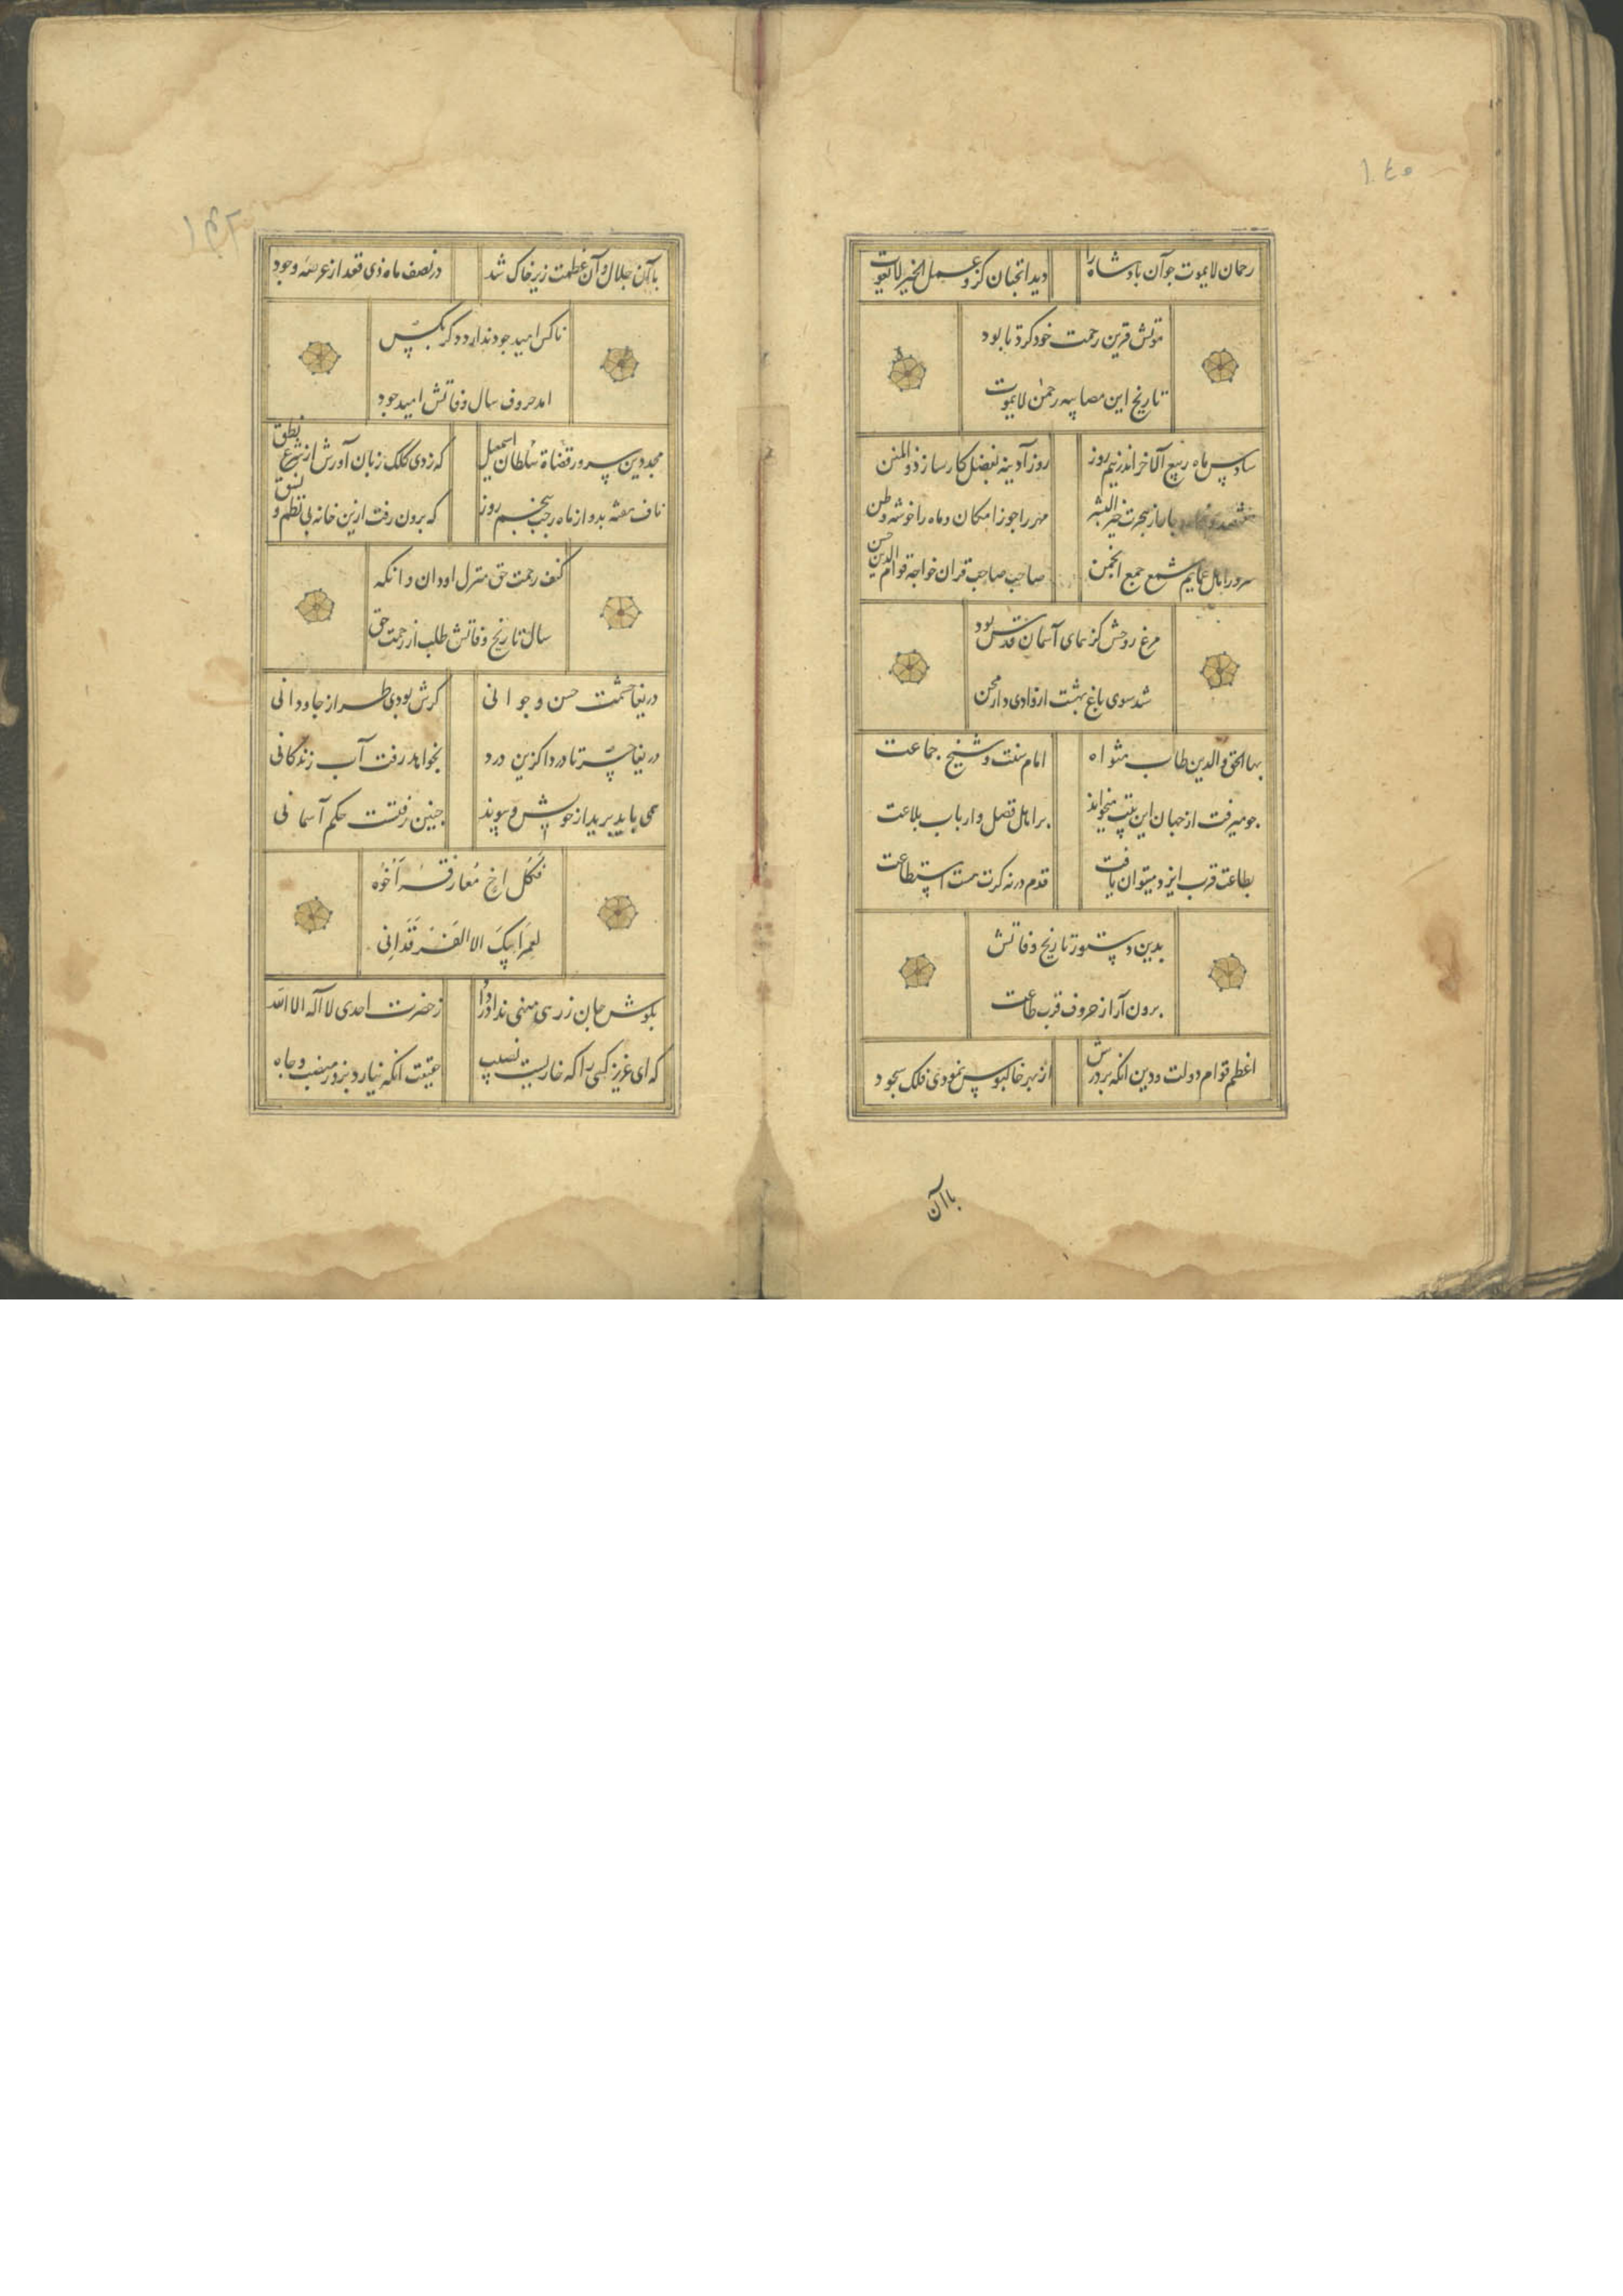 ١٤٥
رحمان لایموت جو آن بادشاه را
دید انجنان کزو عمل الخیر لایفوت
موتش قرین رحمت خود کرد تا بود
تاریخ این معامله رحمن لایموت
سادس ماه ربیع الاخر اندر نیم روز
روز آدینه بفضل کارساز ذوالمنن
باز هجرت خیر البشر
مهر را جوزا مکان و ماه را خوشه وطن
سرور اهل عمایم شمع جمع انجمن
صاحب صاحب قران خواجه قوام الدین حسن
مرغ روحش کز همای آسمان قدس بود
شد سوی باغ بهشت از وادی دار محن
بهاالحق والدین طاب مثواه
امام سنت و شیخ جماعت
جو میرفت از جهان این بیت میخواند
بر اهل فضل و ارباب بلاعت
بطاعت قرب ایزد میتوان یافت
قدم در نه کرت هست استطاعت
بدین دستور تاریخ وفاتش
برون آر از حروف قرب طاعت
اعظم قوام دولت و دین انکه بر درش
از بهر خاکبوس نمودی فلک سجود
باآن
١٤٢
باآن جلال و آن عظمت زیر خاک شد
در نصف ماه ذی قعد از عرصه وجود
تاکس امید جود ندارد دکر بکس
امد حروف سال وفاتش امید جود
مجد دین سرور قضاة سلطان اسمعیل
که زدی کلک زبان آورش از شرع نطق
ناف هفته بد و از ماه رجب پنجم روز
که برون رفت ازین خانه بی نظم و نسق
کنف رحمت حق منزل او دان و انکه
سال تاریخ وفاتش طلب از رحمت حق
دریغا حشمت حسن و جوانی
کرش بودی طراز جاودانی
دریغا حسرتا دردا کزین درد
بخواهد رفت آب زندکانی
همی باید برید از خویش و پیوند
جنین رفتست حکم آسمانی
فَکُل اخ مُفارقه اَخُوه
لعمر ابیک الا الفَرقَدانی
بکوش جان زرهی منهی ندا در داد
ز حضرت احدی لا اله الا الله
که ای عزیز کسی را که خاریست نصیب
حقیقت انکه نیارد بزور منصب و جاه